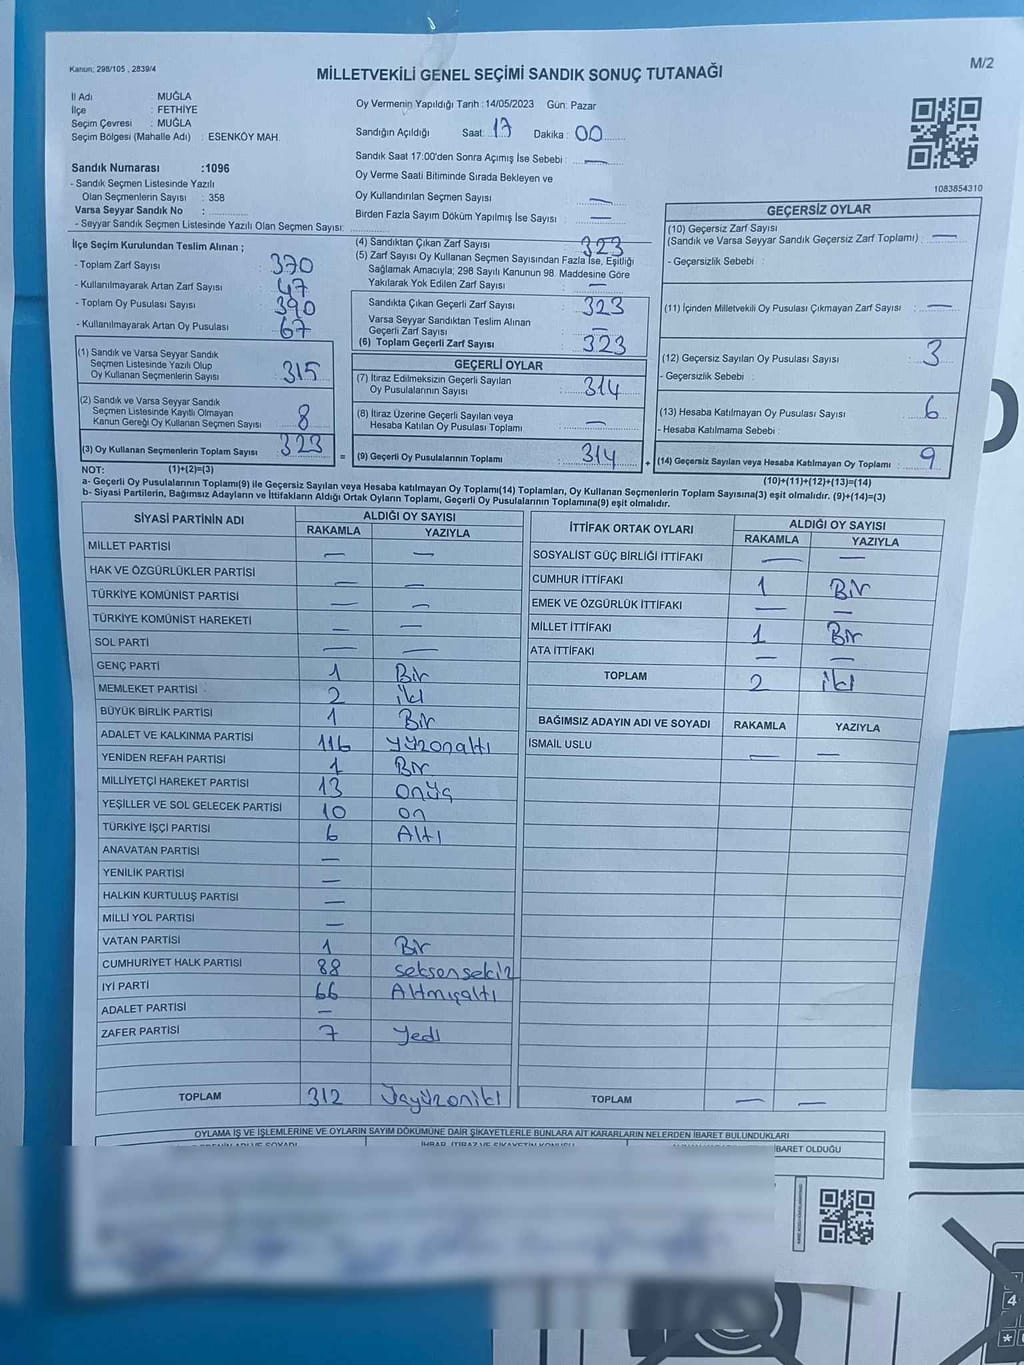 Kanun; 298/105 , 2839/4
MİLLETVEKİLİ GENEL SEÇİMİ SANDIK SONUÇ TUTANAĞI
M/2
İl Adı MUĞLA
İlçe : FETHİYE
Seçim Çevresi : MUĞLA
Seçim Bölgesi (Mahalle Adı) : ESENKÖY MAH.
Sandık Numarası :1096
- Sandık Seçmen Listesinde Yazılı
Olan Seçmenlerin Sayısı : 358
Varsa Seyyar Sandık No :
- Seyyar Sandık Seçmen Listesinde Yazılı Olan Seçmen Sayısı:
Oy Vermenin Yapıldığı Tarih :14/05/2023 Gün: Pazar
Sandığın Açıldığı Saat: 17 Dakika : 00
Sandık Saat 17:00'den Sonra Açımış İse Sebebi : —
Oy Verme Saati Bitiminde Sırada Bekleyen ve
Oy Kullandırılan Seçmen Sayısı —
Birden Fazla Sayım Döküm Yapılmış İse Sayısı : —
1083854310
İlçe Seçim Kurulundan Teslim Alınan ;
- Toplam Zarf Sayısı : 370
- Kullanılmayarak Artan Zarf Sayısı : 47
- Toplam Oy Pusulası Sayısı : 390
- Kullanılmayarak Artan Oy Pusulası : 67
(1) Sandık ve Varsa Seyyar Sandık
Seçmen Listesinde Yazılı Olup
Oy Kullanan Seçmenlerin Sayısı : 315
(2) Sandık ve Varsa Seyyar Sandık
Seçmen Listesinde Kayıtlı Olmayan
Kanun Gereği Oy Kullanan Seçmen Sayısı : 8
(3) Oy Kullanan Seçmenlerin Toplam Sayısı : 323
(4) Sandıktan Çıkan Zarf Sayısı : 323
(5) Zarf Sayısı Oy Kullanan Seçmen Sayısından Fazla İse, Eşitliği
Sağlamak Amacıyla; 298 Sayılı Kanunun 98. Maddesine Göre
Yakılarak Yok Edilen Zarf Sayısı : —
Sandıkta Çıkan Geçerli Zarf Sayısı : 323
Varsa Seyyar Sandıktan Teslim Alınan
Geçerli Zarf Sayısı : —
(6) Toplam Geçerli Zarf Sayısı : 323
GEÇERLİ OYLAR
(7) İtiraz Edilmeksizin Geçerli Sayılan
Oy Pusulalarının Sayısı : 314
(8) İtiraz Üzerine Geçerli Sayılan veya
Hesaba Katılan Oy Pusulası Toplamı : —
= (9) Geçerli Oy Pusulalarının Toplamı : 314
GEÇERSİZ OYLAR
(10) Geçersiz Zarf Sayısı
(Sandık ve Varsa Seyyar Sandık Geçersiz Zarf Toplamı) : —
- Geçersizlik Sebebi :
(11) İçinden Milletvekili Oy Pusulası Çıkmayan Zarf Sayısı : —
(12) Geçersiz Sayılan Oy Pusulası Sayısı : 3
- Geçersizlik Sebebi :
(13) Hesaba Katılmayan Oy Pusulası Sayısı : 6
- Hesaba Katılmama Sebebi :
+ (14) Geçersiz Sayılan veya Hesaba Katılmayan Oy Toplamı : 9
NOT: (1)+(2)=(3) (10)+(11)+(12)+(13)=(14)
a- Geçerli Oy Pusulalarının Toplamı(9) ile Geçersiz Sayılan veya Hesaba katılmayan Oy Toplamı(14) Toplamları, Oy Kullanan Seçmenlerin Toplam Sayısına(3) eşit olmalıdır. (9)+(14)=(3)
b- Siyasi Partilerin, Bağımsız Adayların ve İttifakların Aldığı Ortak Oyların Toplamı, Geçerli Oy Pusulalarının Toplamına(9) eşit olmalıdır.
SİYASİ PARTİNİN ADI ALDIĞI OY SAYISI
RAKAMLA YAZIYLA
MİLLET PARTİSİ — —
HAK VE ÖZGÜRLÜKLER PARTİSİ — —
TÜRKİYE KOMÜNİST PARTİSİ — —
TÜRKİYE KOMÜNİST HAREKETİ — —
SOL PARTİ — —
GENÇ PARTİ 1 Bir
MEMLEKET PARTİSİ 2 iki
BÜYÜK BİRLİK PARTİSİ 1 Bir
ADALET VE KALKINMA PARTİSİ 116 yüzonaltı
YENİDEN REFAH PARTİSİ 1 Bir
MİLLİYETÇİ HAREKET PARTİSİ 13 onüç
YEŞİLLER VE SOL GELECEK PARTİSİ 10 on
TÜRKİYE İŞÇİ PARTİSİ 6 Altı
ANAVATAN PARTİSİ —
YENİLİK PARTİSİ —
HALKIN KURTULUŞ PARTİSİ —
MİLLİ YOL PARTİSİ —
VATAN PARTİSİ 1 Bir
CUMHURİYET HALK PARTİSİ 88 seksensekiz
İYİ PARTİ 66 Altmışaltı
ADALET PARTİSİ —
ZAFER PARTİSİ 7 Yedi
TOPLAM 312 Üçyüzoniki
İTTİFAK ORTAK OYLARI ALDIĞI OY SAYISI
RAKAMLA YAZIYLA
SOSYALİST GÜÇ BİRLİĞİ İTTİFAKI — —
CUMHUR İTTİFAKI 1 Bir
EMEK VE ÖZGÜRLÜK İTTİFAKI — —
MİLLET İTTİFAKI 1 Bir
ATA İTTİFAKI — —
TOPLAM 2 iki
BAĞIMSIZ ADAYIN ADI VE SOYADI RAKAMLA YAZIYLA
İSMAİL USLU — —
TOPLAM — —
OYLAMA İŞ VE İŞLEMLERİNE VE OYLARIN SAYIM DÖKÜMÜNE DAİR ŞİKAYETLERLE BUNLARA AİT KARARLARIN NELERDEN İBARET BULUNDUKLARI
İBARET OLDUĞU
4
*